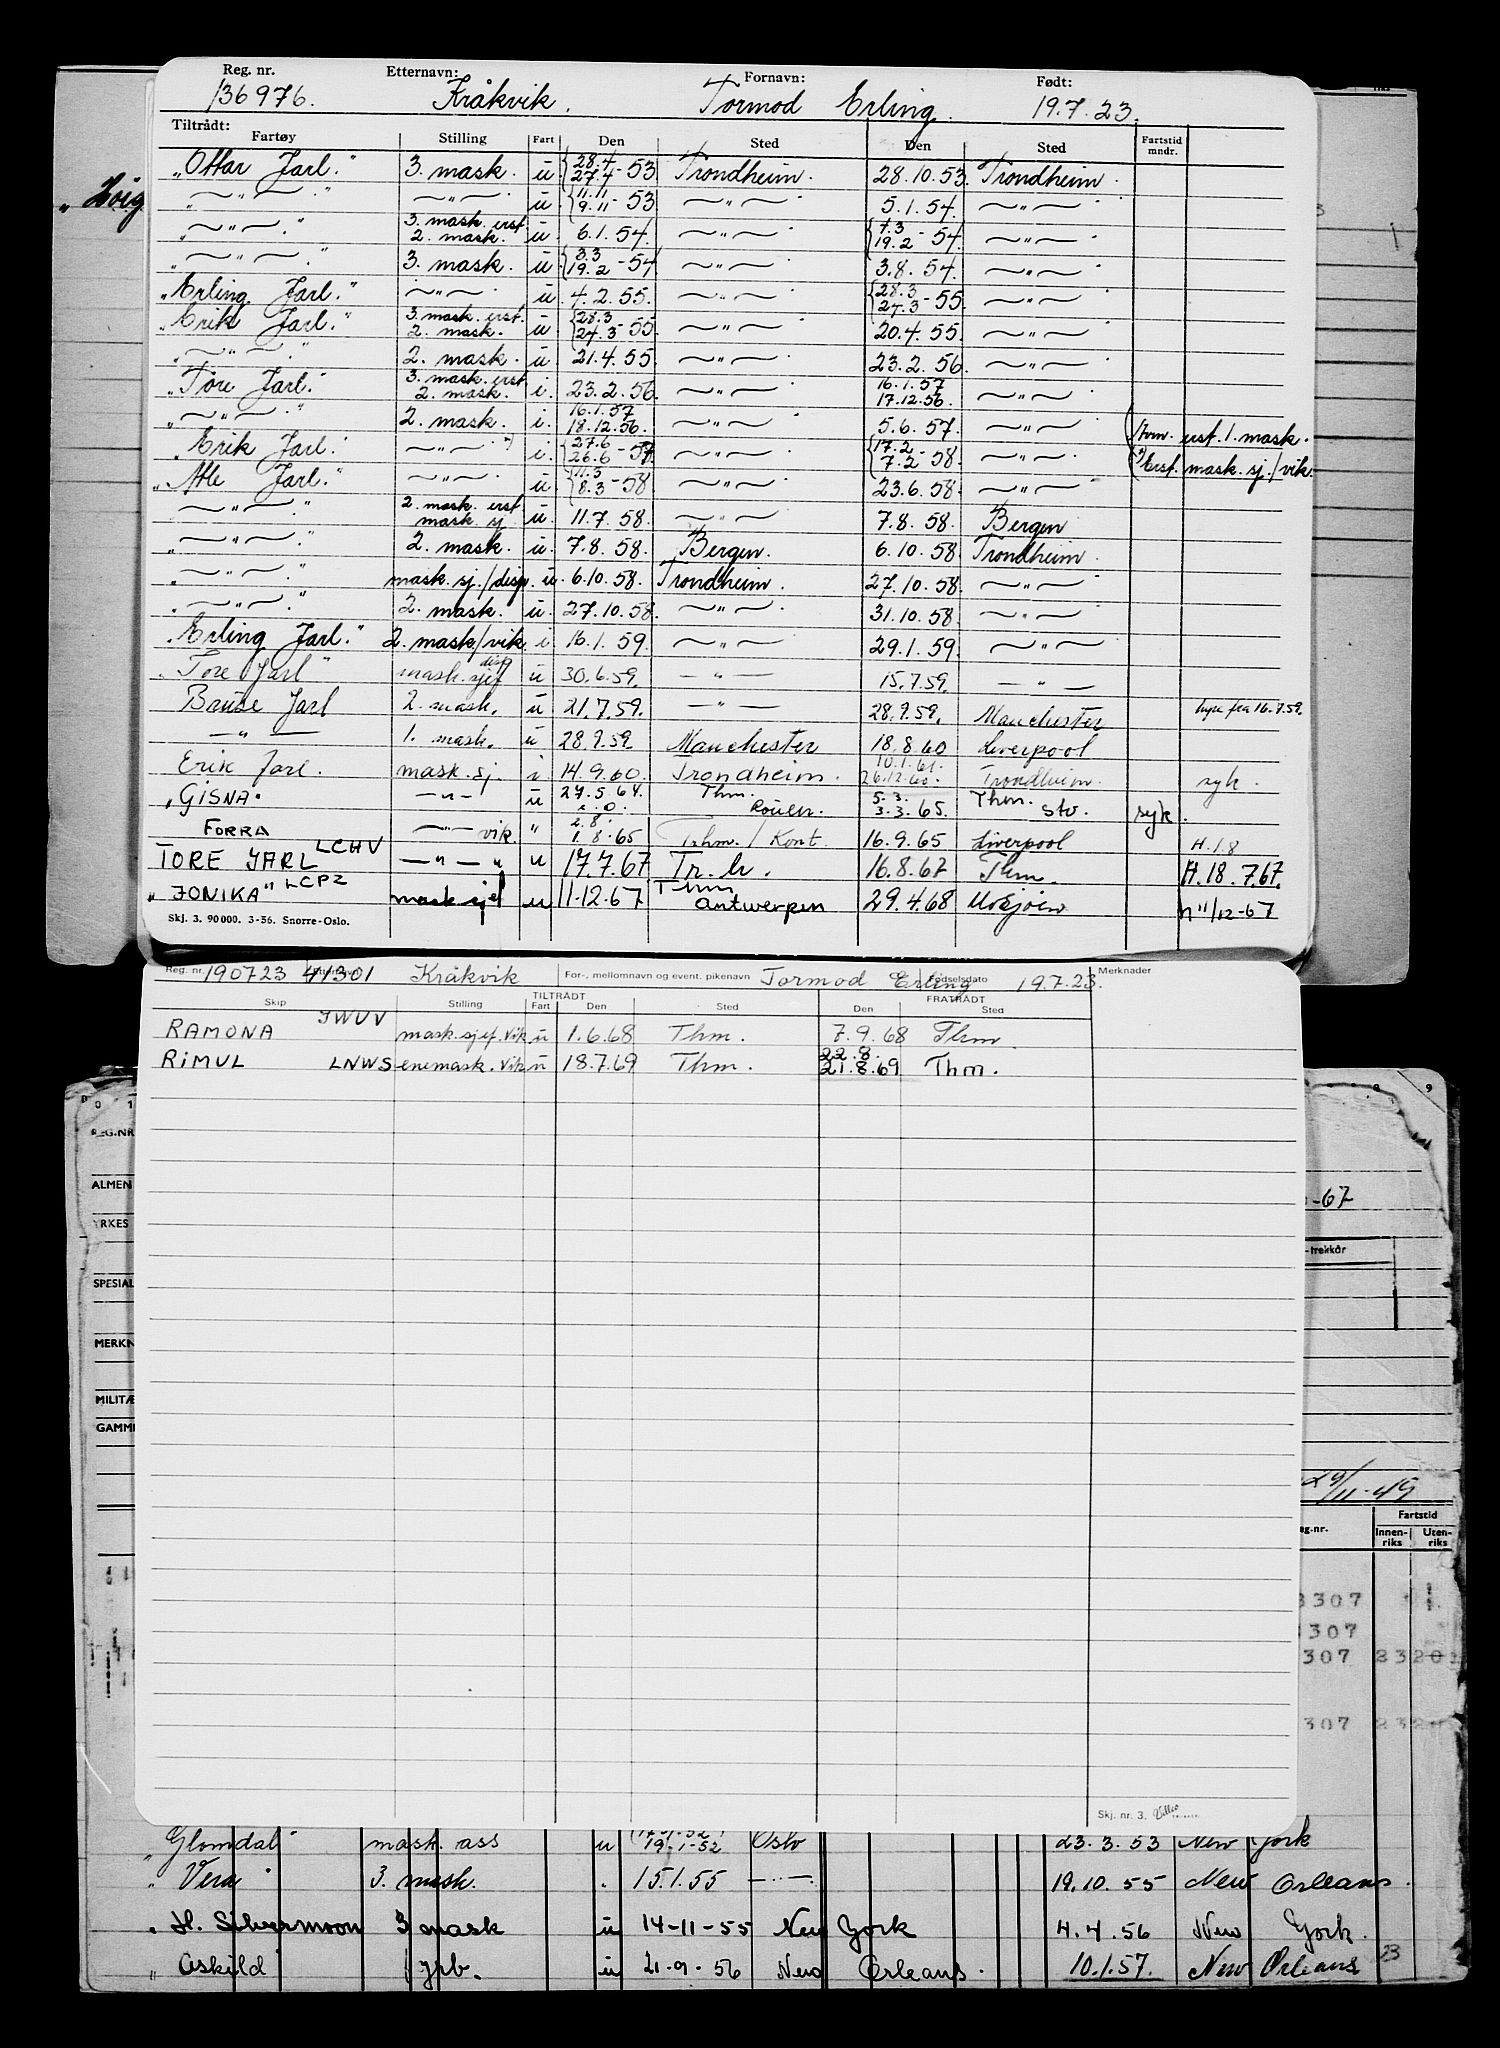 Reg. nr. Etternavn: Fornavn: Født:
136976. Kråkvik. Tormod Erling. 19.7.23.
Tiltrådt:
Fartøy Stilling Fart Den Sted Den Sted Fartstid mndr.
"Ottar Jarl." 3. mask. u {28.4 27.4-53 Trondheim. 28.10.53. Trondheim.
"—"—." —"—. u {11.11 9.11-53 —"— 5.1.54. —"—
"—"—." 3. mask. erst. 2. mask. u. 6.1.54. —"— {7.3 19.2-54. —"—
"—"—." 3. mask. u {3.3 19.2-54 —"— 3.8.54. —"—
"Erling Jarl." —"— u 4.2.55. —"— {28.3 27.3-55. —"—
"Erik Jarl." 3. mask. erst. 2. mask. u {28.3 24.3-55. —"— 20.4.55 —"—
"—"—." 2. mask. u 21.4.55 —"— 23.2.56 —"—
"Tore Jarl." 3. mask. erst 2. mask. i. 23.2.56. —"— 16.1.57 17.12.56. —"—
"—"—." 2. mask. i. 16.1.57 18.12.56. —"— 5.6.57. —"— erst. 1. mask.
Erik Jarl. —"— *) i. {27.6 26.6-57. —"— {17.2 7.2-58. —"— *) Erst. mask. sj./vik.
"Atle Jarl." —"— u {11.3 8.3-58 —"— 23.6.58. —"—
—"—" 2. mask. erst mask. sj u. 11.7.58. —"— 7.8.58. Bergen
"—"—." 2. mask. u. 7.8.58. Bergen. 6.10.58 Trondheim.
"—"—." mask. sj./disp. u. 6.10.58. Trondheim. 27.10.58. —"—
"—"—." 2. mask. u. 27.10.58. —"— 31.10.58 —"—
"Erling Jarl." 2. mask/vik. i 16.1.59. —"— 29.1.59. —"—
"Tore Jarl" mask. sjef disp u 30.6.59. —"— 15.7.59. —"—
Bause Jarl 2. mask. u 21.7.59. —"— 28.9.59. Manchester hyre fra 16.7.59.
—"— 1. mask. u 28.9.59. Manchester 18.8.60 Liverpool
Erik Jarl. mask. sj. i 14.9.60. Trondheim. 10.1.61. 26.12.60. Trondheim. syk.
"GISNA" —"— u 27.5.64. Thm. Rouen. 5.3. 3.3.65. Thm. Sto. syk.
FORRA —"— vik. " 2.8. 1.8.65 Trhm./Kont. 16.9.65 Liverpool H.1.8
TORE JARL LCHV —"—" u 17.7.67 Tr.h. 16.8.67 Thm. H.18.7.67.
"JONIKA" LCPZ mask sjef u 11-12.67 Thm Antwerpen 29.4.68 Mosjøen h 11/12-67
Skj. 3. 90000. 3-56. Snorre-Oslo.
Reg. nr. 190723 41301 Etternavn Kråkvik For-, mellomnavn og event. pikenavn Tormod Erling Fødselsdato 19.7.23. Merknader
TILTRÅDT FRATRÅDT
Skip Stilling Fart Den Sted Den Sted
RAMONA JWUV mask. sjef. Vik u 1.6.68 Thm. 7.9.68 Thm.
RIMUL LNWS enemask. Vik u 18.7.69 Thm. 22.8. 21.8.69 Thm.
Skj. nr. 3.
REG.NR
ALMEN
YRKES
-67
-trekkår
SPESIAL
MERKN
MILITÆ
GAMM
29/11-49
eg.nr. Fartstid
Innenriks Utenriks
8307
307
307 23 20
307 23 2
"Glomdal" mask. ass u 19.1-52 Oslo 23.3.53 New York
"Vera" 3. mask. " 15.1.55 —"— 19.10.55 New Orleans.
"H. Silvermoon 3 mask u 14-11-55 New York 4.4.56 New York.
"Askild jrb. u 21.9.56 New Orleans. 10.1.57. New Orleans